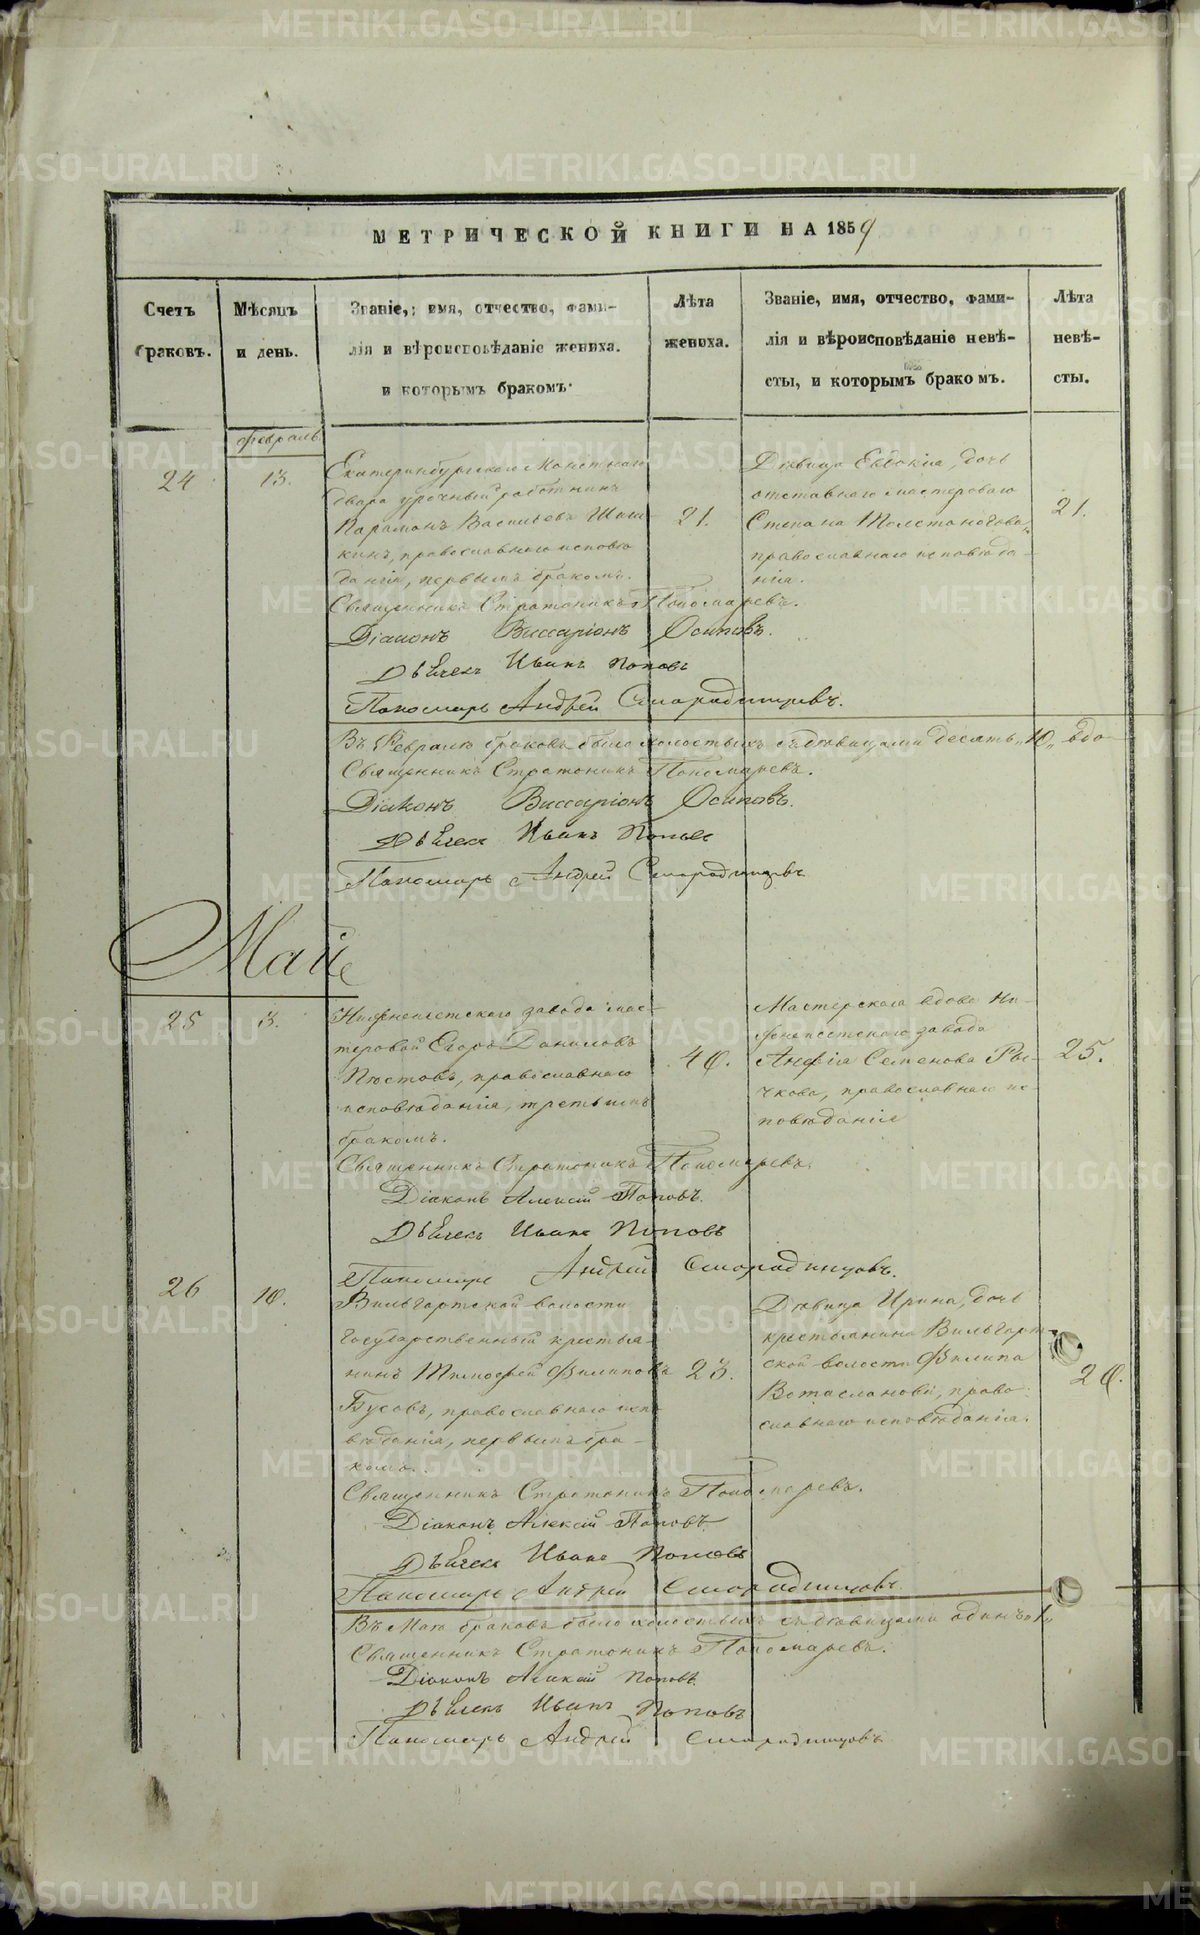 МЕТРИЧЕСКОЙ КНИГИ НА 1859
Счетъ браковъ.
Мѣсяцъ и день.
Званіе, имя, отчество, фами-
лія и вѣроисповѣданіе жениха.
и которымъ бракомъ.
Лѣта жениха.
Званіе, имя, отчество, фами-
лія и вѣроисповѣданіе невѣ-
сты, и которымъ бракомъ.
Лѣта невѣ-
сты.
Февраль
24
13.
Екатеринбургскаго Монетнаго
двора урочный работникъ
Парамонъ Васильевъ
кинъ, православнаго исповѣ
данія, первымъ бракомъ.
21.
Дѣвица Евдокія, дочь
отставнаго мастероваго
Степана Толстоногова,
православнаго исповѣда-
нія.
21.
Священникъ Стратоникъ Пономаревъ.
Діаконъ Виссаріонъ Осиповъ.
Дьячекъ Иванъ Поповъ
Пономарь Андрей Смородинцовъ.
Въ Февралѣ браковъ было холостыхъ съ дѣвицами десять „10„ вдо
Священникъ Стратоникъ Пономаревъ.
Діаконъ Виссаріонъ Осиповъ.
Дьячекъ Иванъ Поповъ
Пономарь Андрей Смородинцовъ
Май
25
3.
Нижнеисетскаго завода мас-
теровой Егоръ Даниловъ
Пюстовъ, православнаго
исповѣданія, третьимъ
бракомъ.
40.
Мастерскаго вдова Ни-
жнеисетскаго завода
Анфія Семенова Рыс-
чкова, православнаго ис-
повѣданія
25.
Священникъ Стратоникъ Пономаревъ.
Діаконъ Алексій Поповъ.
Дьячекъ Иванъ Поповъ
Пономарь Андрей Смородинцовъ.
26
10.
Вильгортской волости
государственный крестья-
нинъ Тимофей Филиповъ
Бусовъ, православнаго испо
вѣданія, первымъ бра-
комъ.
23.
Дѣвица Ирина, дочь
крестьянина Вильгорт-
ской волости Филипа
православнаго исповѣданія.
20.
Священникъ Стратоникъ Пономаревъ.
Діаконъ Алексій Поповъ
Дьячекъ Иванъ Поповъ
Пономарь Андрей Смородинцовъ.
Въ Маѣ браковъ было холостыхъ съ дѣвицами одинъ „1„
Священникъ Стратоникъ Пономаревъ.
Діаконъ Алексій Поповъ
Дьячекъ Иванъ Поповъ
Пономарь Андрей Смородинцовъ
METRIKI.GASO-URAL.RU